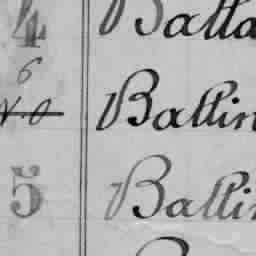 4 Balla
6
N.O Ballin
5 Ballin